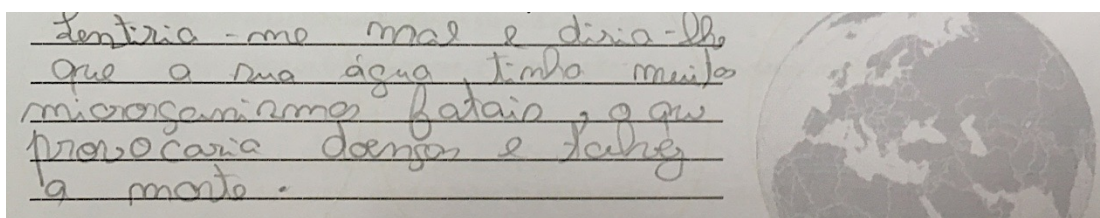 Sentiria-me mal e diria-lhe
que a sua água tinha muitos
microrganismos fatais, o que
provocaria doenças e talvez
a morte.